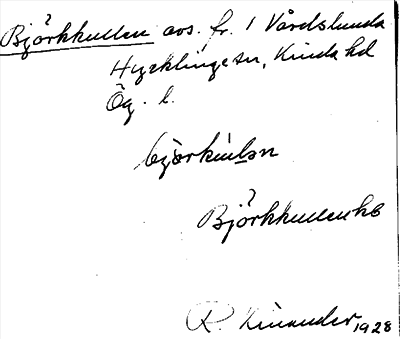 Björkkullen avs. fr. 1 Vårdslunda
Hycklinge sn, Kinda hd
Ög. l.
björkùlen
Björkkullen hb
R. Kinander 1928